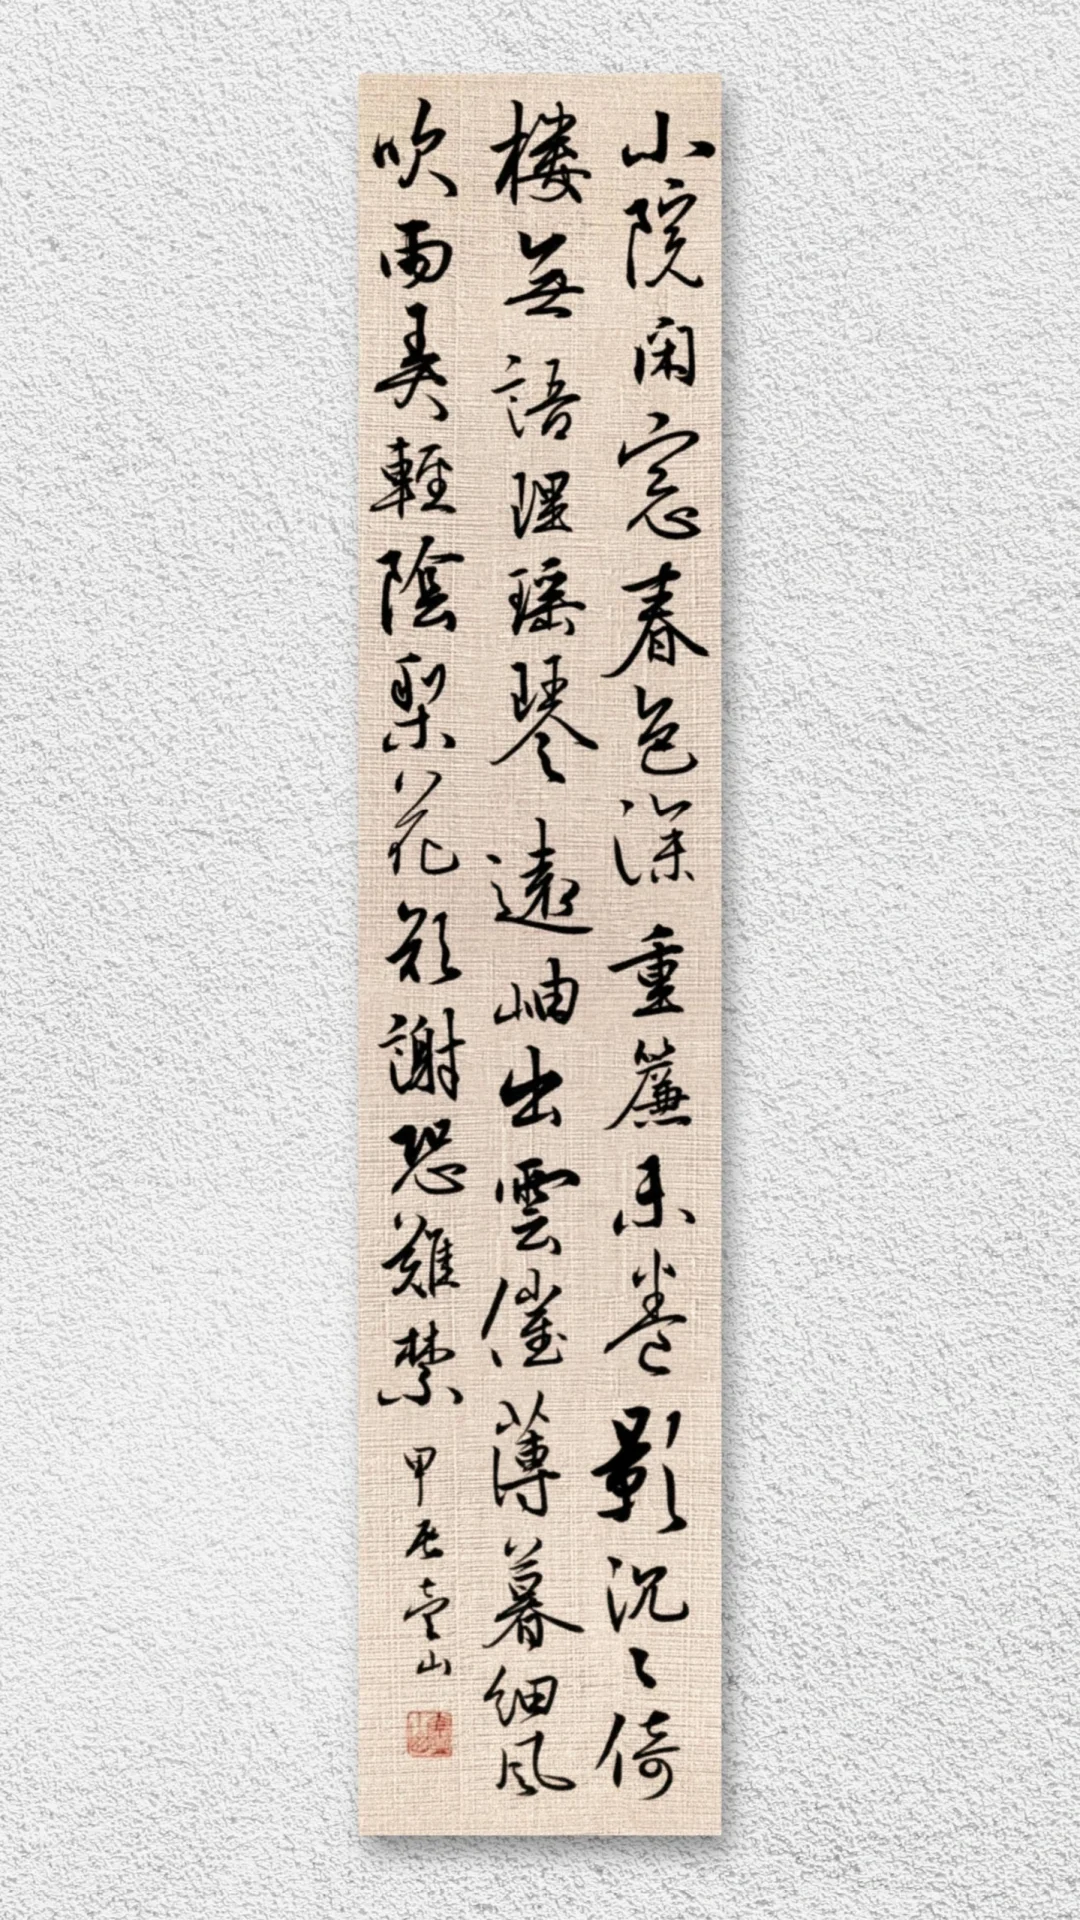 小院闲窓春色深重簾未卷影沉々倚
楼無語理瑶琴遠岫出雲催薄暮细风
吹雨弄輕陰梨花欲謝恐難禁甲辰壹山